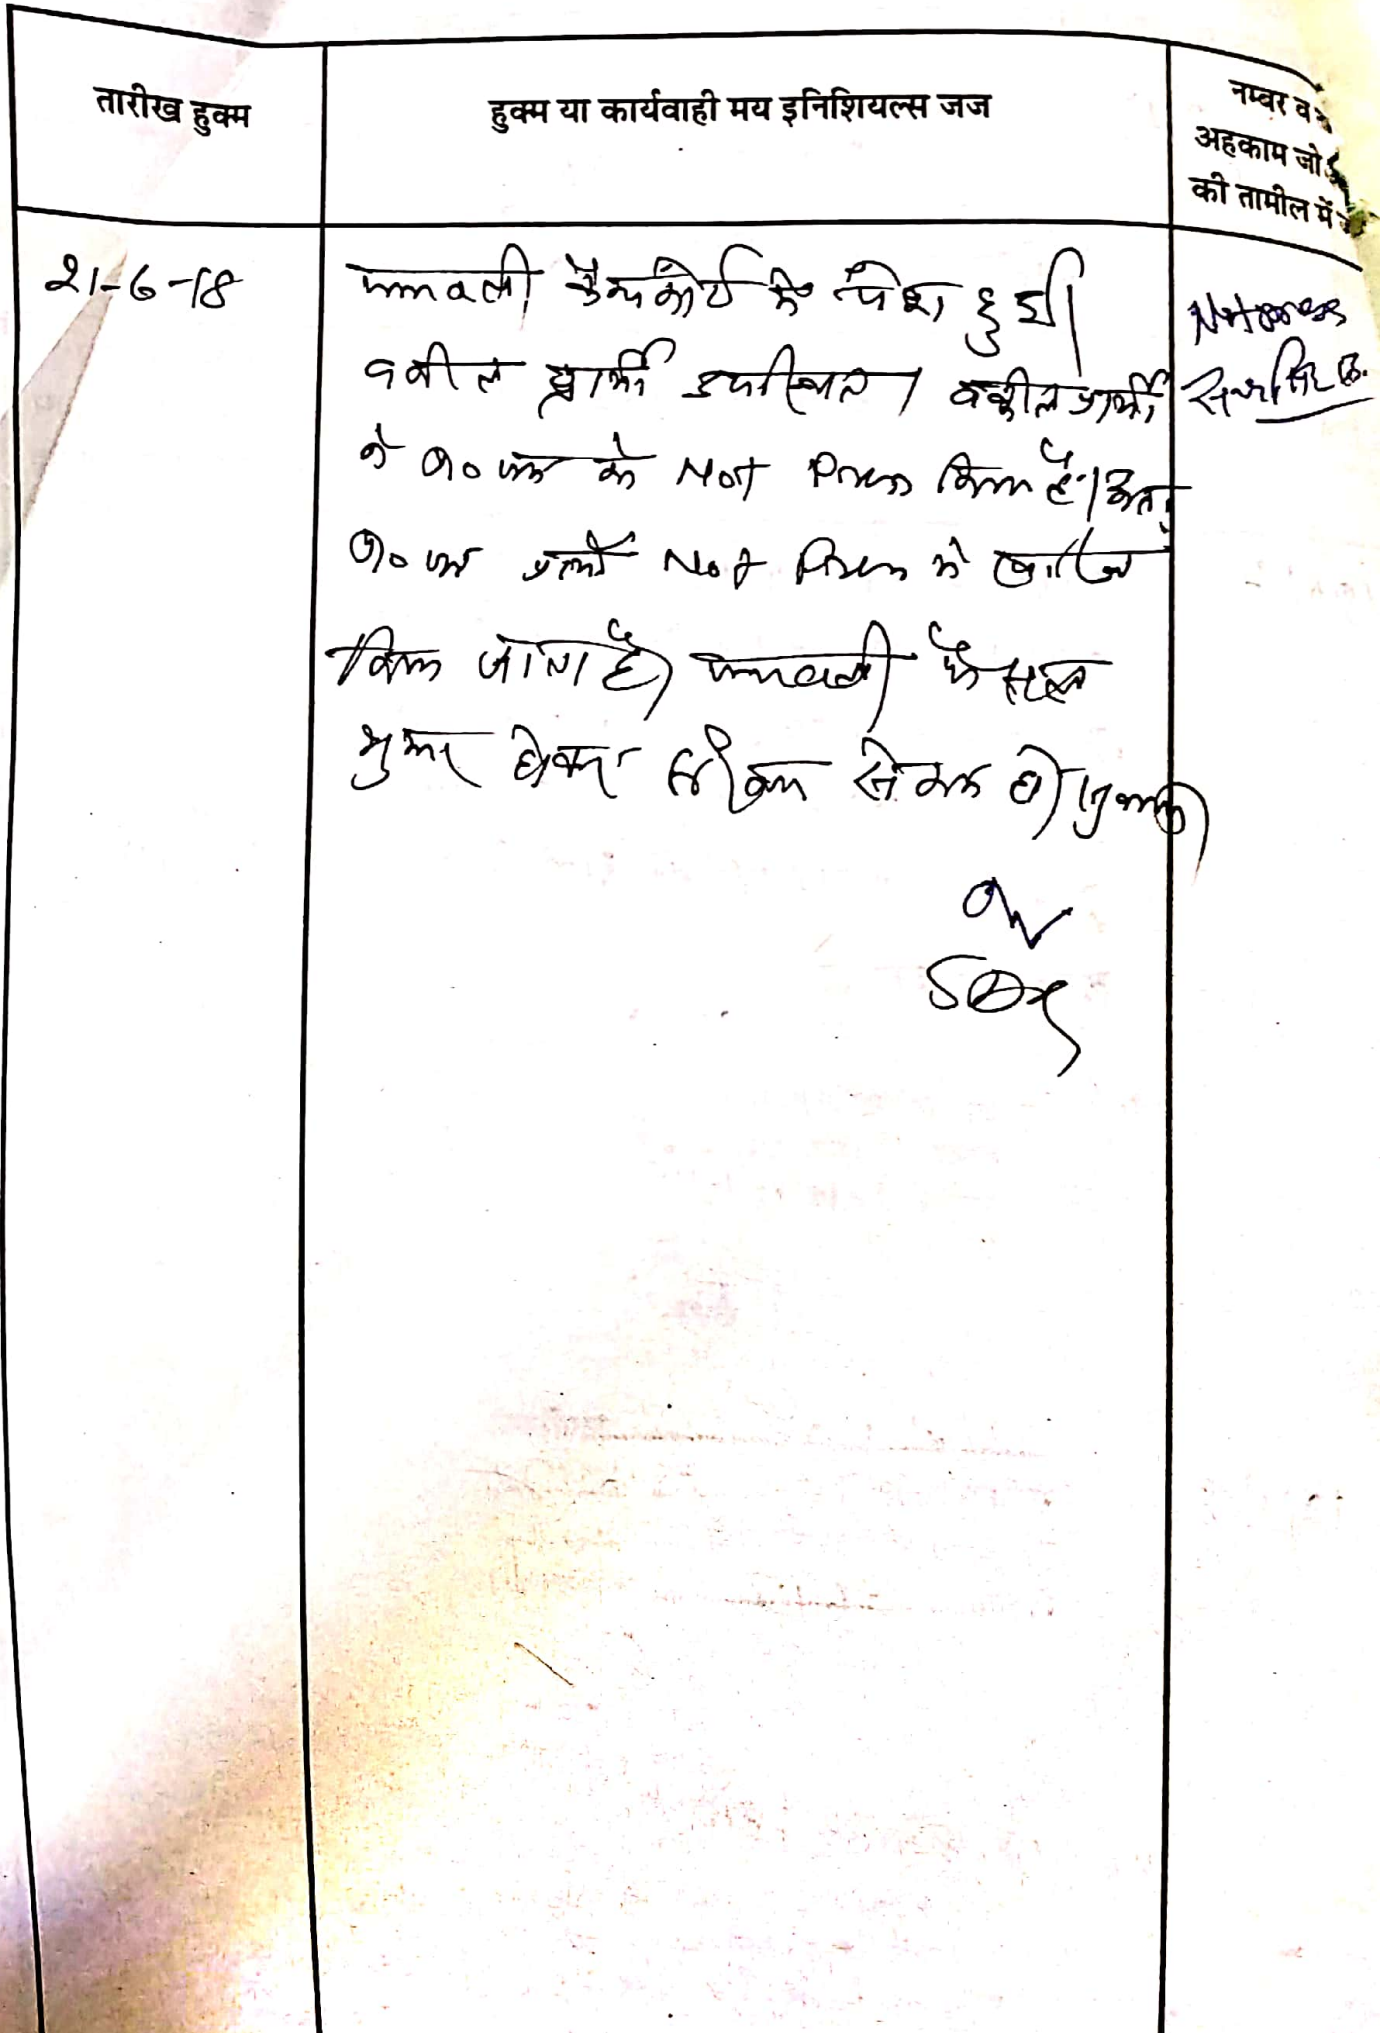 तारीख हुक्म
हुक्म या कार्यवाही मय इनिशियल्स जज
नम्बर व
अहकाम जो
की तामील में
21-6-18
पत्रावली कैम्पकोर्ट में पेश हुयी
वकील प्रार्थी उपस्थित। वकील प्रार्थी
ने प्रा० पत्र को Not Press किया है। अतः
प्रा० पत्र प्रार्थी Not Press में खारिज
किया जाता है। पत्रावली फैसल
शुमार होकर दाखिल दफ्तर हो।
Not press
SDO